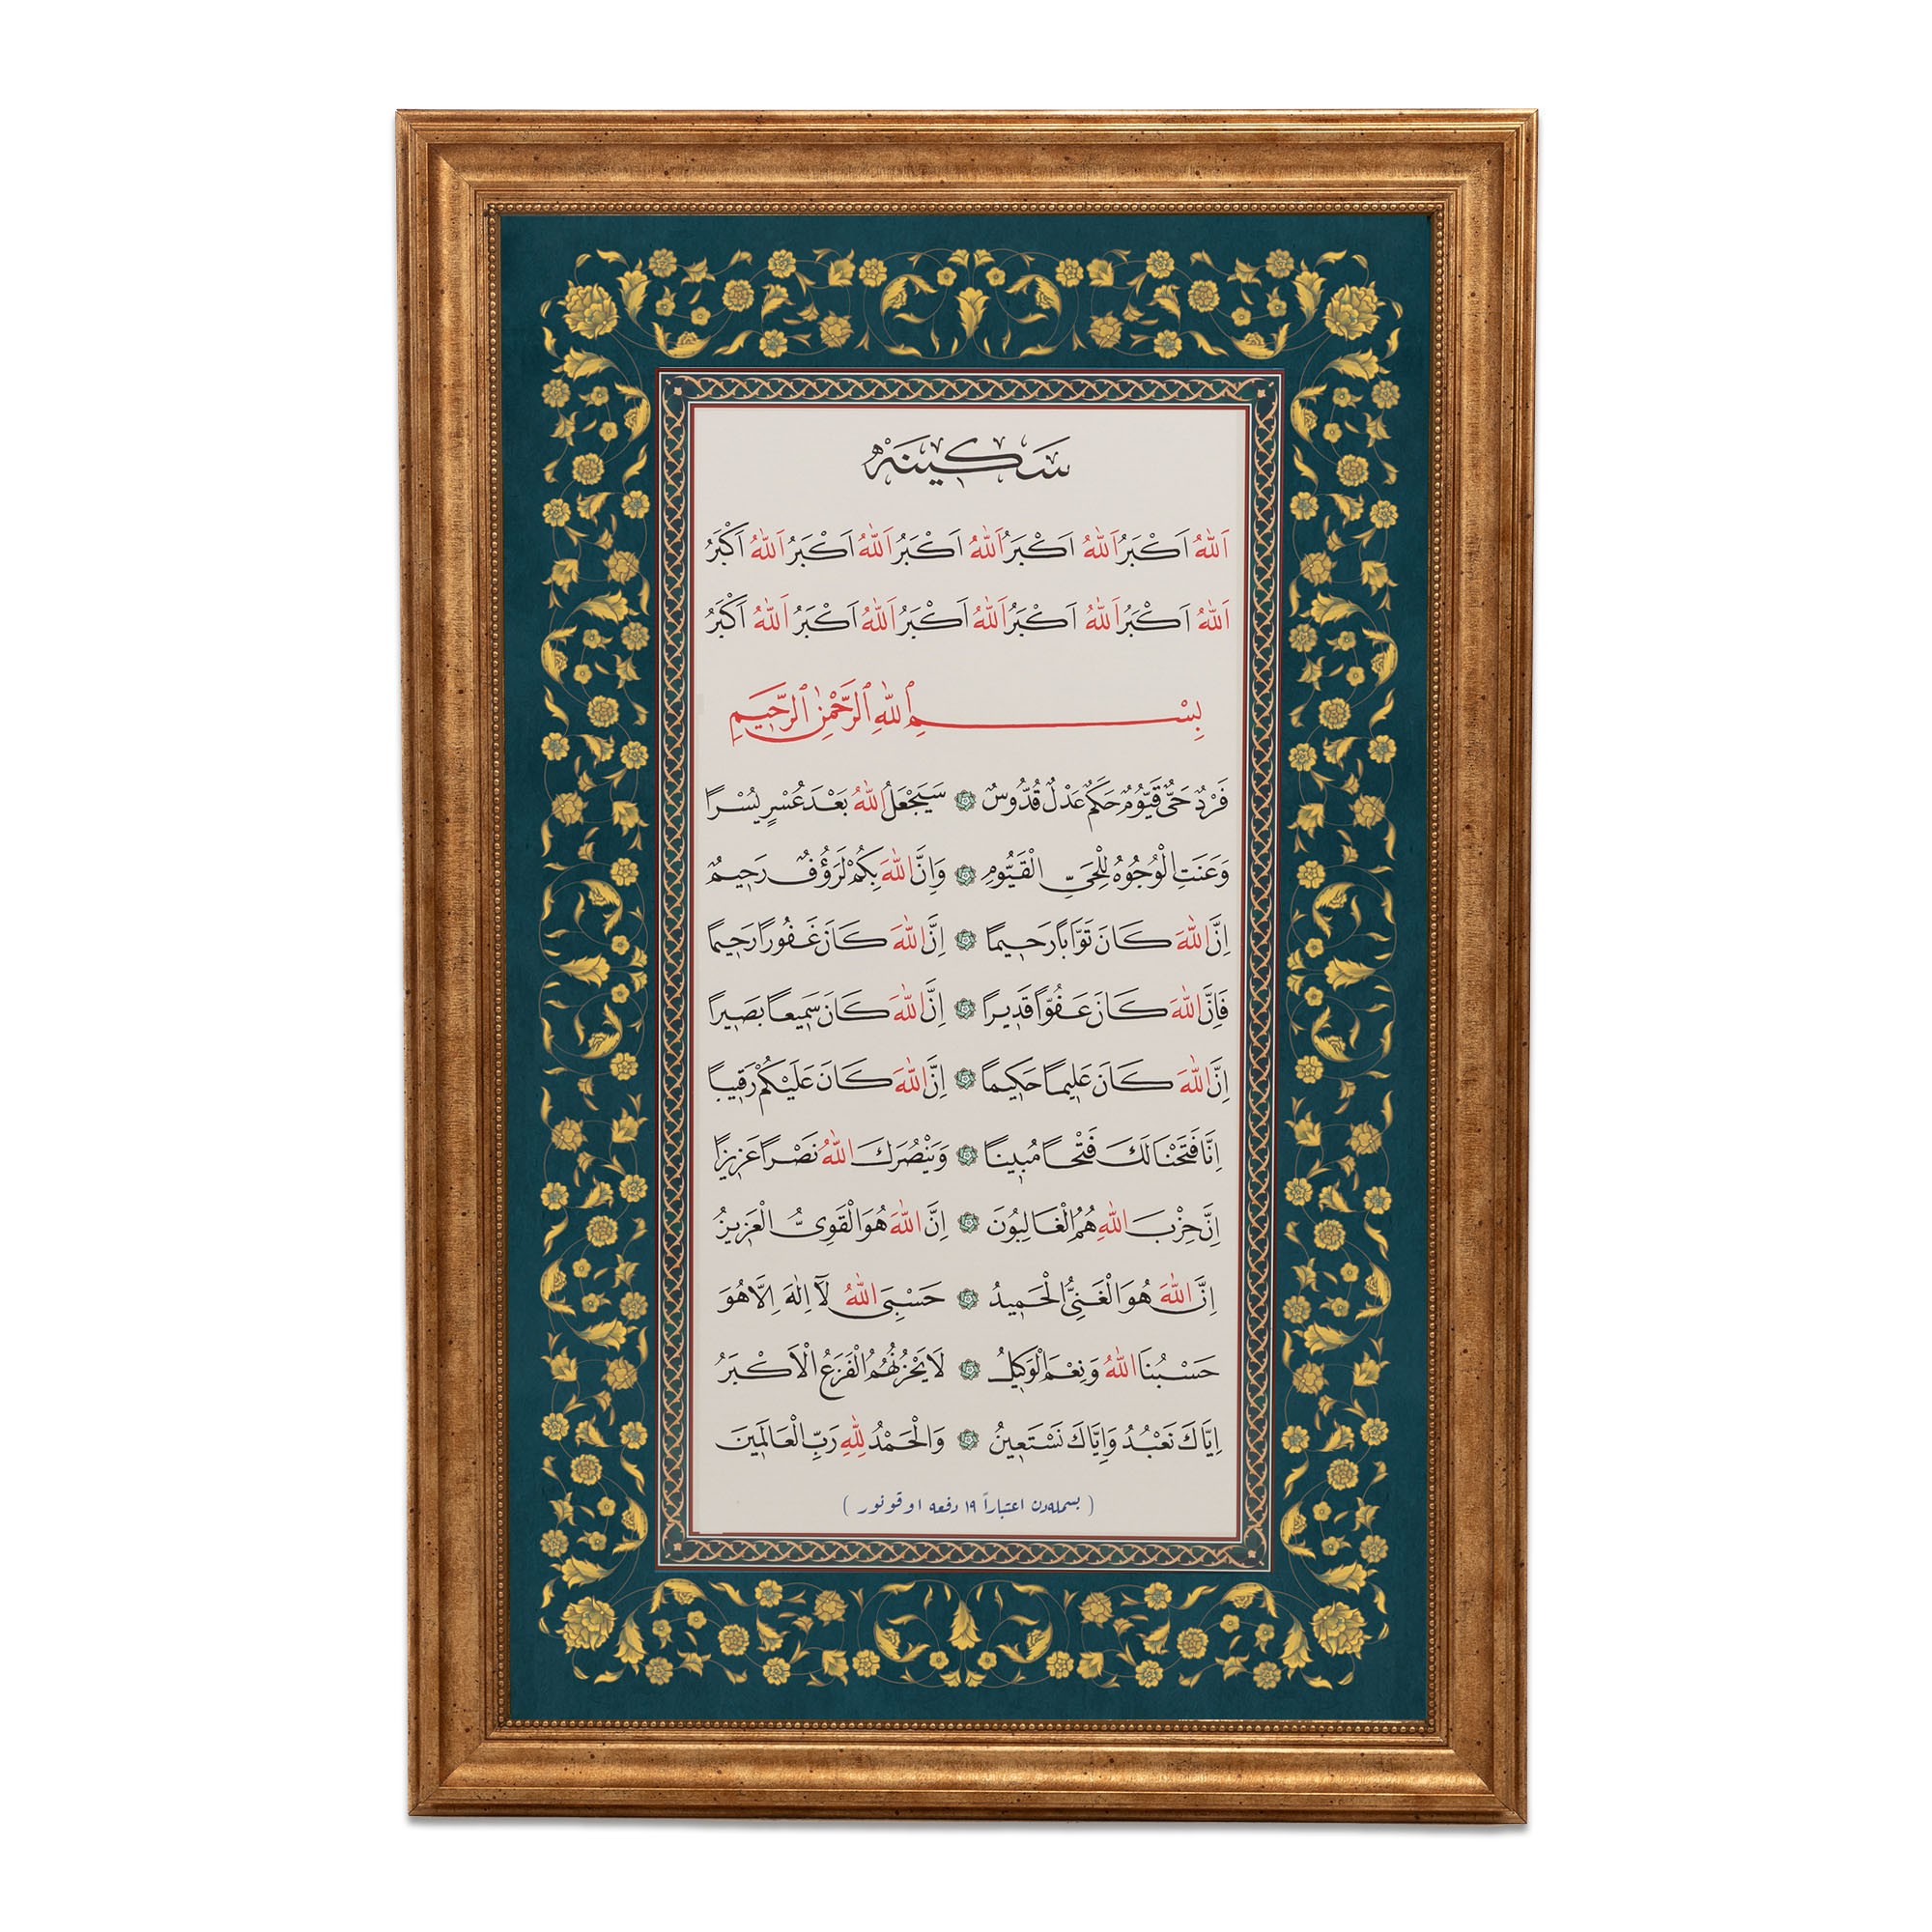 سَكينه
اَللّٰهُ اَكْبَرُ اَللّٰهُ اَكْبَرُ اَللّٰهُ اَكْبَرُ اَللّٰهُ اَكْبَرُ اَللّٰهُ اَكْبَرُ
اَللّٰهُ اَكْبَرُ اَللّٰهُ اَكْبَرُ اَللّٰهُ اَكْبَرُ اَللّٰهُ اَكْبَرُ اَللّٰهُ اَكْبَرُ
بِسْمِ ٱللّٰهِ ٱلرَّحْمٰنِ ٱلرَّحٖيمِ
فَرْدٌ حَىٌّ قَيُّومٌ حَكَمٌ عَدْلٌ قُدُّوسٌ ۞ سَيَجْعَلُ اللّٰهُ بَعْدَ عُسْرٍ يُسْرًا
وَعَنَتِ الْوُجُوهُ لِلْحَىِّ الْقَيُّومِ ۞ وَاِنَّ اللّٰهَ بِكُمْ لَرَؤُفٌ رَحٖيمٌ
اِنَّ اللّٰهَ كَانَ تَوَّابًا رَحٖيمًا ۞ اِنَّ اللّٰهَ كَانَ غَفُورًا رَحٖيمًا
فَاِنَّ اللّٰهَ كَانَ عَفُوًّا قَدٖيرًا ۞ اِنَّ اللّٰهَ كَانَ سَمٖيعًا بَصٖيرًا
اِنَّ اللّٰهَ كَانَ عَلٖيمًا حَكٖيمًا ۞ اِنَّ اللّٰهَ كَانَ عَلَيْكُمْ رَقٖيبًا
اِنَّا فَتَحْنَا لَكَ فَتْحًا مُبٖينًا ۞ وَيَنْصُرَكَ اللّٰهُ نَصْرًا عَزٖيزًا
اِنَّ حِزْبَ اللّٰهِ هُمُ الْغَالِبُونَ ۞ اِنَّ اللّٰهَ هُوَ الْقَوِىُّ الْعَزٖيزُ
اِنَّ اللّٰهَ هُوَ الْغَنِىُّ الْحَمٖيدُ ۞ حَسْبِىَ اللّٰهُ لَٓا اِلٰهَ اِلَّا هُوَ
حَسْبُنَا اللّٰهُ وَنِعْمَ الْوَكٖيلُ ۞ لَا يَحْزُنُهُمُ الْفَزَعُ الْاَكْبَرُ
اِيَّاكَ نَعْبُدُ وَاِيَّاكَ نَسْتَعٖينُ ۞ وَالْحَمْدُ لِلّٰهِ رَبِّ الْعَالَمٖينَ
( بسمله‌دن اعتباراً ١٩ دفعه اوقونور )